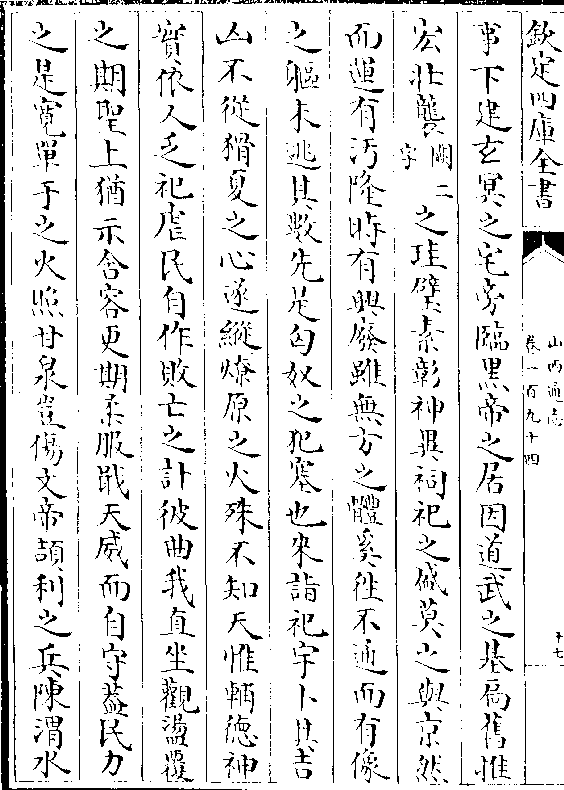 欽定四庫全書
山西通志
卷一百九十四
十七
事下建玄冥之宅旁臨黒帝之居因道武之基扄舊惟
宏壯襲闕二字之珪璧素彰神異祠祀之盛莫之與京然
而運有汚隆時有興廢雖無方之體奚往不通而有像
之軀未逃其數先是匈奴之犯塞也來詣祀宇卜其吉
凶不從猾夏之心遂縱燎原之火殊不知天惟輔德神
實依人乏祀虐民自作敗亡之計彼曲我直坐觀盪覆
之期聖上猶示含容更期柔服戢天威而自守葢民力
之是寛單于之火照甘泉豈傷文帝頡利之兵陳渭水